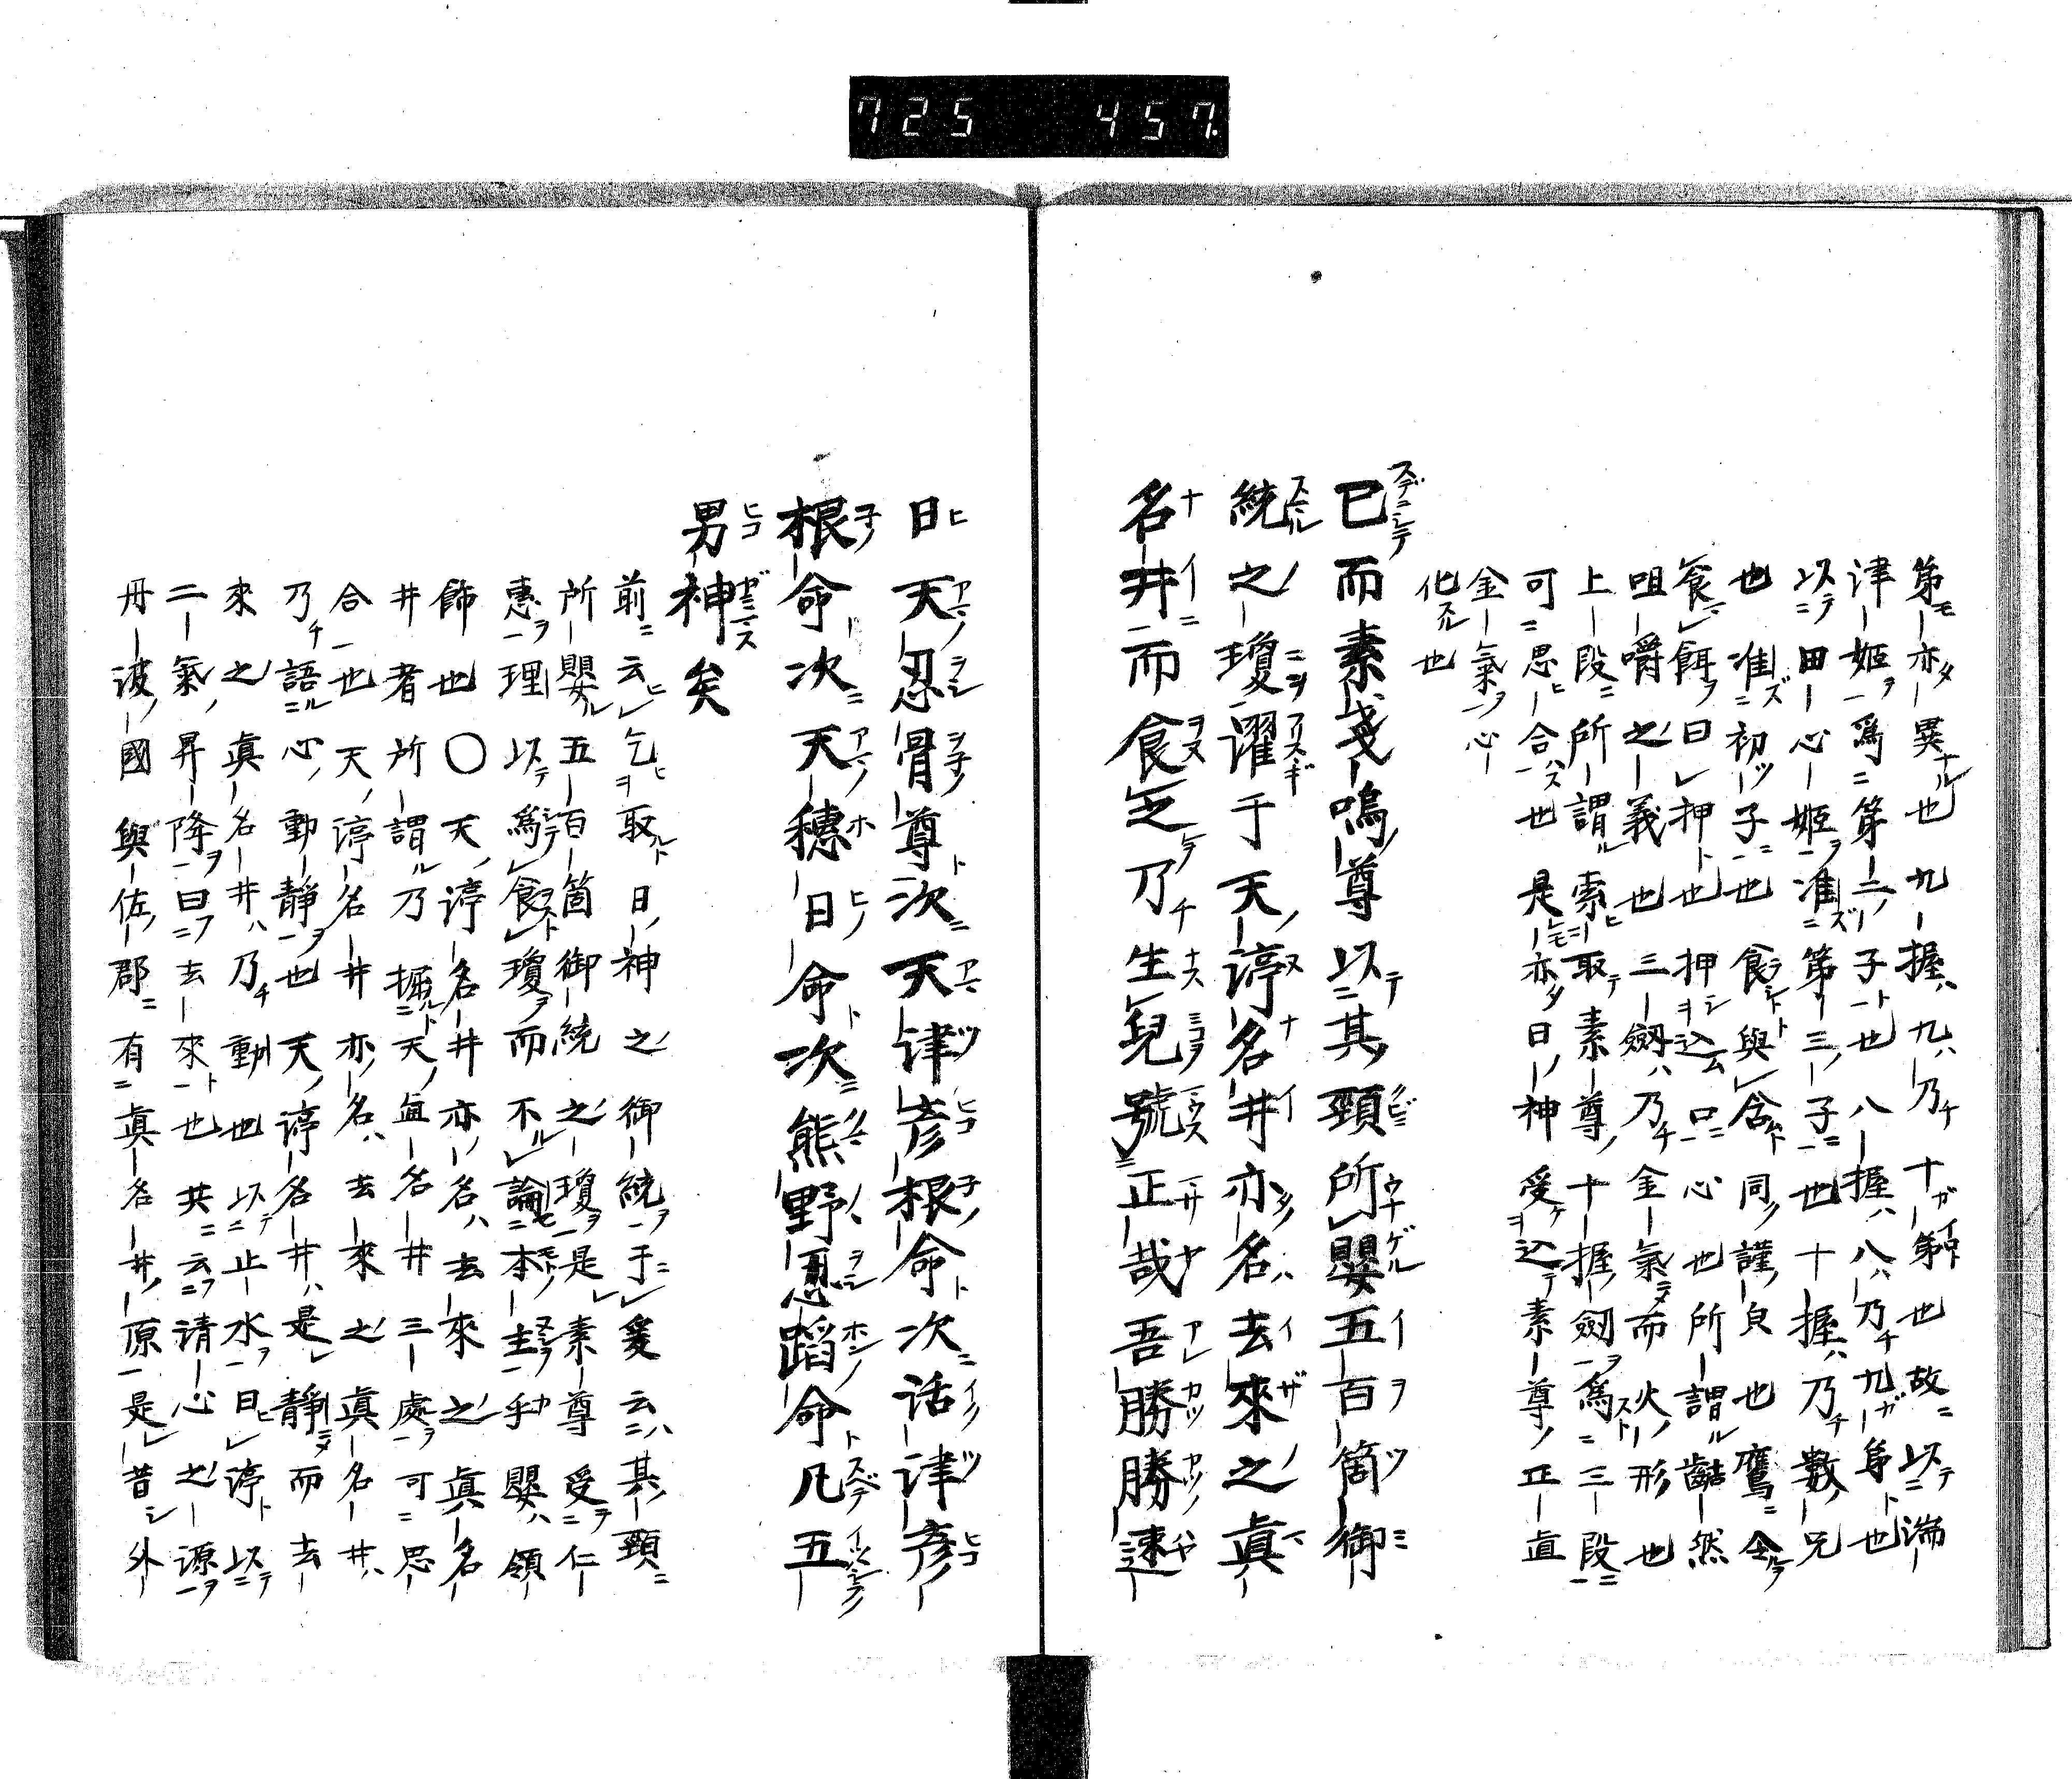 725 457
第亦異也九握九乃十第也故以湍
津姫爲第二子也八握八乃九第也
以田心姫准第三子也十握乃數兄
也准初子也食與含同謹負也鷹全
食餌曰押也押込口心也所謂齧然
咀嚼之義也三劔乃金氣而火形也
上段所謂索取素尊十握劔爲三段
可思合也是亦日神受込素尊正直
金氣心
化也
已而素戔嗚尊以其頸所嬰五百箇御
統之瓊濯于天渟名井亦名去來之眞
名井而食之乃生兒號正哉吾勝勝速
日天忍骨尊次天津彦根命次活津彦
根命次天穗日命次熊野忍蹈命凡五
男神矣
前云乞取日神之御統于爰云其頸
所嬰五百箇御統之瓊是素尊受仁
惠理以爲食瓊而不論本主乎嬰領
飾也〇天渟名井亦名去來之眞名
井者所謂乃掘天眞名井三處可思
合也天渟名井亦名去來之眞名井
乃語心動靜也天渟名井是靜而去
來之眞名井乃動也以止水曰渟以
二氣昇降曰去來也共云清心之源
丹波國與佐郡有眞名井原是昔外